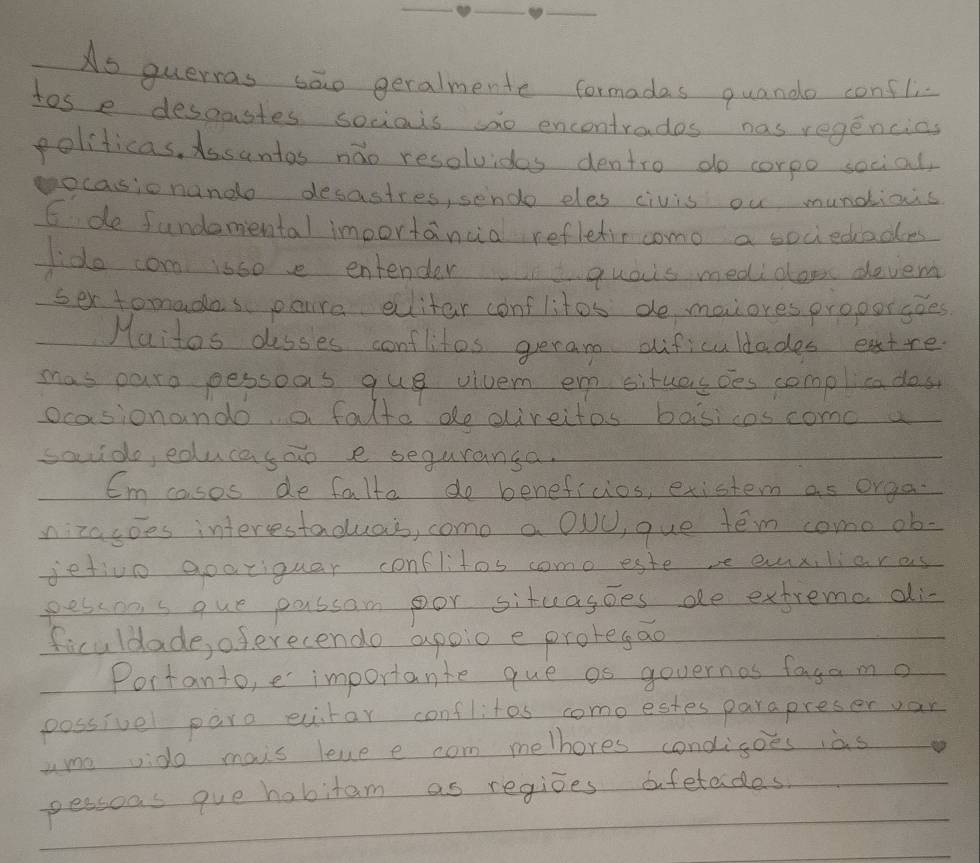 As guerras são geralmente formadas quando confli-
tos e desgastes sociais são encontrados nas regências
políticas. Assuntos não resolvidos dentro do corpo social,
ocasionando desastres, sendo eles civis ou mundiais.
É de fundamental importância refletir como a sociedade
lida com isso e entender quais medidas devem
ser tomadas para evitar conflitos de maiores proporções
Muitos desses conflitos geram dificuldades extre-
mas para pessoas que vivem em situações complicadas,
ocasionando a falta de direitos básicos como a
saúde, educação e segurança.
Em casos de falta de benefícios, existem as orga-
nizações interestaduais, como a ONU, que têm como ob-
jetivo apaziguar conflitos como este e auxiliar as
pessoas que passam por situações de extrema di-
ficuldade, oferecendo apoio e proteção
Portanto, é importante que os governos façam o
possível para evitar conflitos como estes para preservar
uma vida mais leve e com melhores condições às
pessoas que habitam as regiões afetadas.